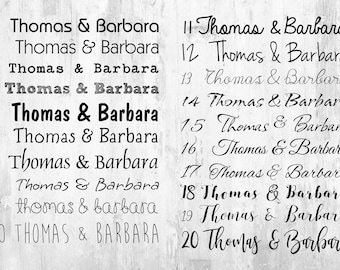 Thomas & Barbara
Thomas & Barbara
Thomas & Barbara
Thomas & Barbara
Thomas & Barbara
Thomas & Barbara
Thomas & Barbara
Thomas & Barbara
thomas & barbara
0 THOMAS & BARBARA
11 Thomas & Barbara
12 Thomas & Barbara
13 Thomas & Barbara
14 Thomas & Barbara
15 Thomas & Barbara
16 Thomas & Barbara
17 Thomas & Barbara
18 Thomas & Barbara
19 Thomas & Barbara
20 Thomas & Barbara